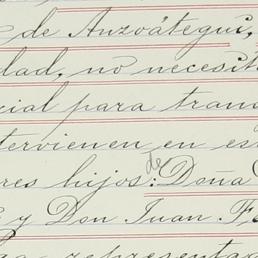 de Anzoátegui,
dad, no necesita
cial para tran
tervienen en es
res hijos: de Doña
y Don Juan F
representa